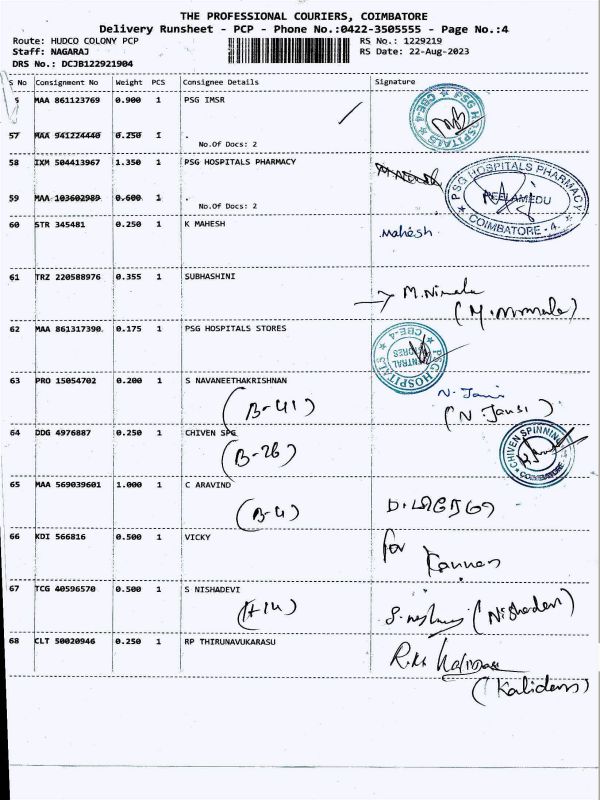 THE PROFESSIONAL COURIERS, COIMBATORE
Delivery Runsheet - PCP - Phone No.:0422-3505555 - Page No.:4
Route: HUDCO COLONY PCP RS No.: 1229219
Staff: NAGARAJ RS Date: 22-Aug-2023
DRS No.: DCJB122921904
S No Consignment No Weight PCS Consignee Details Signature
MAA 861123769 0.900 1 PSG IMSR
PSG HOSPITALS CBE-4
57 MAA 941224440 0.250 1 .
No.Of Docs: 2
58 IXM 504413967 1.350 1 PSG HOSPITALS PHARMACY
PSG HOSPITALS PHARMACY
PEELAMEDU
COIMBATORE - 4.
59 MAA 103602989 0.600 1 .
No.Of Docs: 2
60 STR 345481 0.250 1 K MAHESH Mahesh
61 TRZ 220588976 0.355 1 SUBHASHINI
M. Nirmala
(M. nirmala)
62 MAA 861317390 0.175 1 PSG HOSPITALS STORES
PSG HOSPITALS CENTRAL STORES CBE-4
63 PRO 15054702 0.200 1 S NAVANEETHAKRISHNAN
(B-41) (N Jansi)
64 DDG 4976887 0.250 1 CHIVEN SPG
(B-26)
CHIVEN SPINNING COIMBATORE
65 MAA 569039601 1.000 1 C ARAVIND
(B-4)
66 KDI 566816 0.500 1 VICKY for
Kannan
67 TCG 40596570 0.500 1 S NISHADEVI
(Nishadevi)
68 CLT 50020946 0.250 1 RP THIRUNAVUKARASU
(Kalidass)